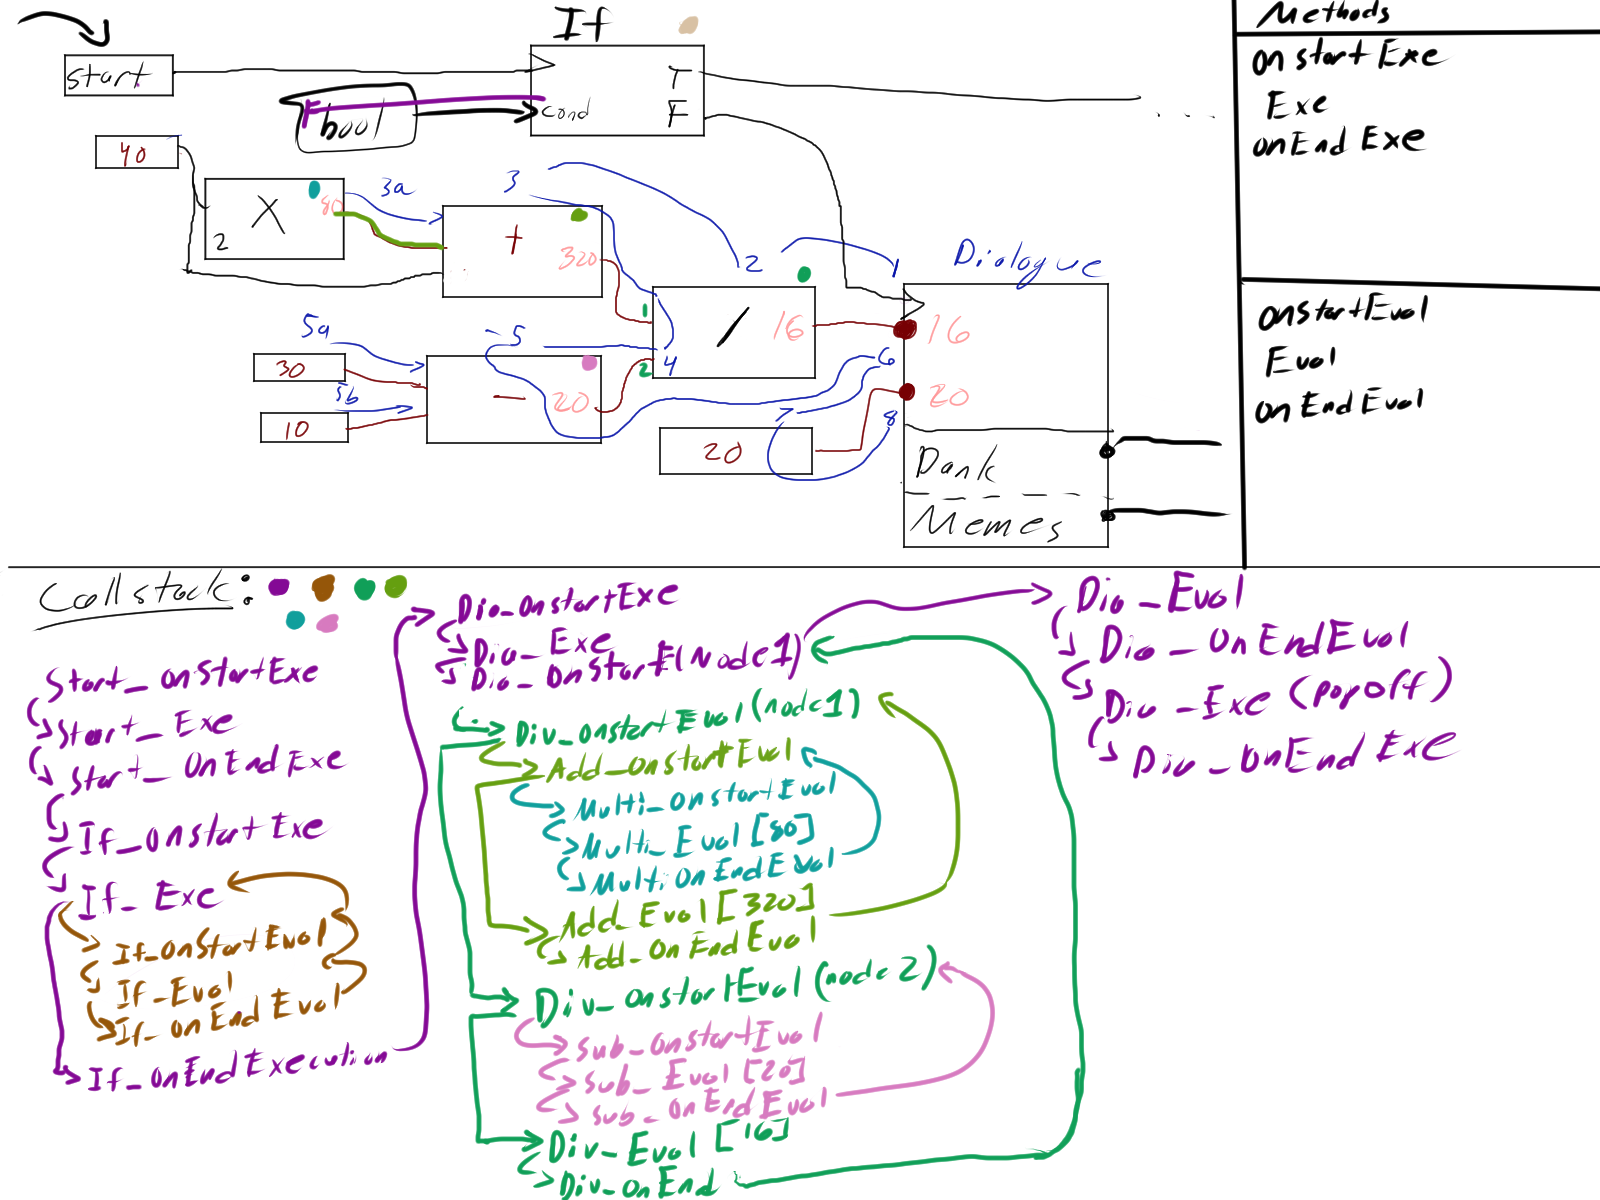 If
Methods
start
T
cond
F
bool
onstartExe
Exe
onEndExe
40
X
80
2
3a
3
+
320
2
1
Dialogue
1
/
16
16
5a
5
4
2
6
30
5b
-
20
20
10
7
8
20
Dank
Memes
onstartEval
Eval
onEndEval
Callstack:
Start_onstartExe
Start_Exe
Start_OnEndExe
If_onstartExe
If_Exe
If_onStartEval
If_Eval
If_onEndEval
If_onEndExecution
Dia_OnstartExe
Dia_Exe
Dia_OnstartE(Node1)
Div_onstartEval(node1)
Add_onstartEval
Multi_onstartEval
Multi_Eval[80]
MultiOnEndEval
Add_Eval[320]
Add_OnEndEval
Div_onstartEval(node2)
Sub_onstartEval
Sub_Eval[20]
Sub_onEndEval
Div_Eval[16]
Div_onEnd
Dia_Eval
Dia_OnEndEval
Dia_Exe(payoff)
Div_OnEndExe